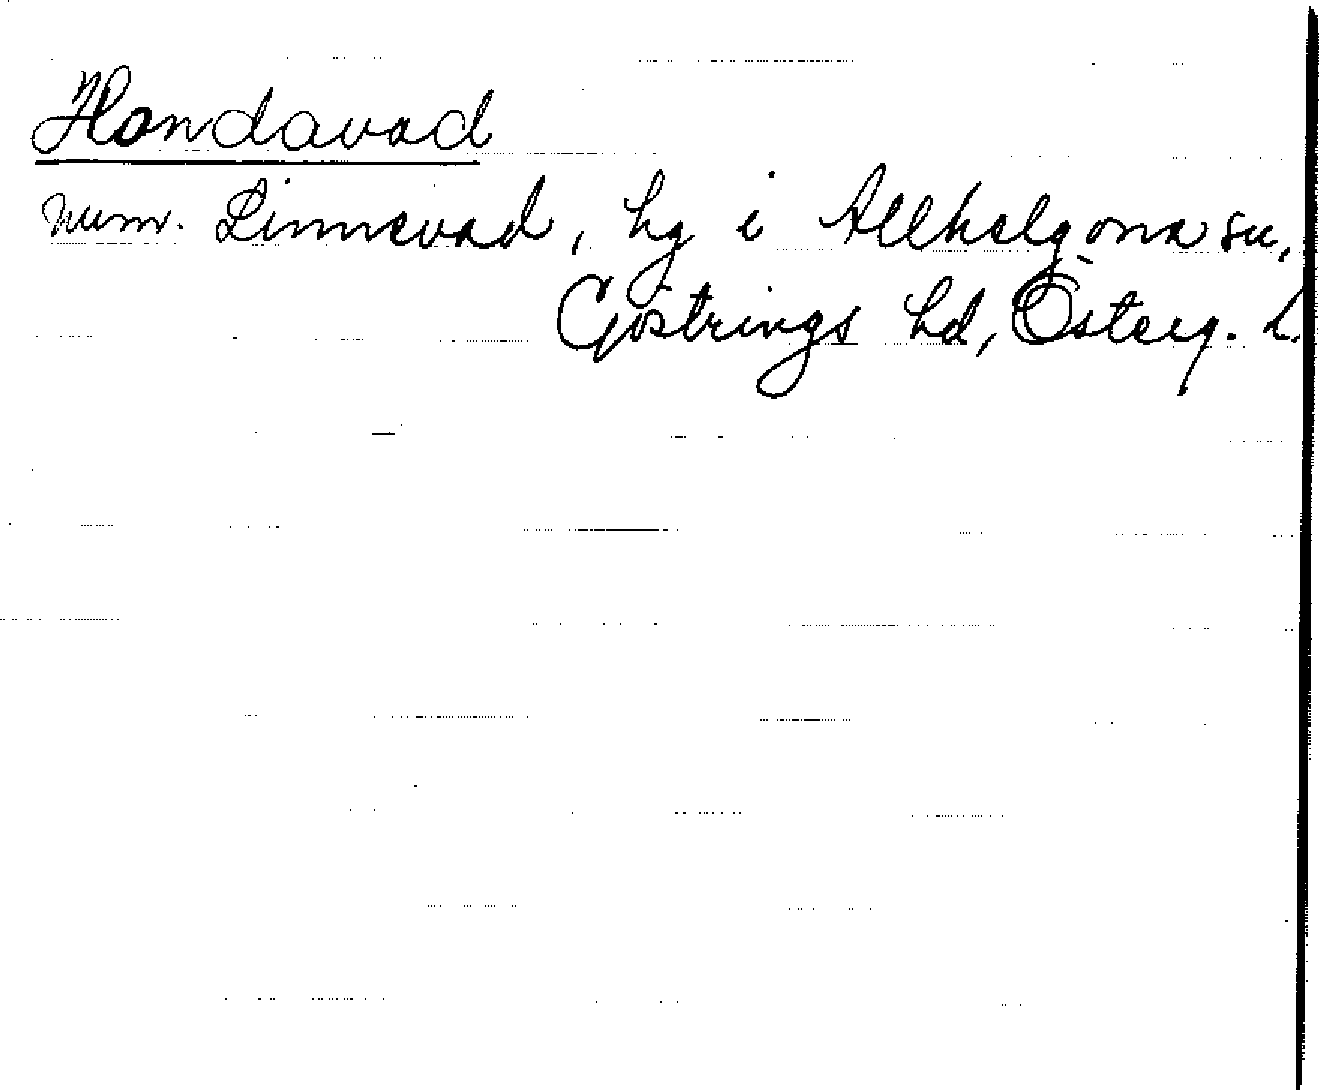 Hondavad
num. Linnevad, hg i Allhelgona sn,
Göstrings hd, Österg. L.